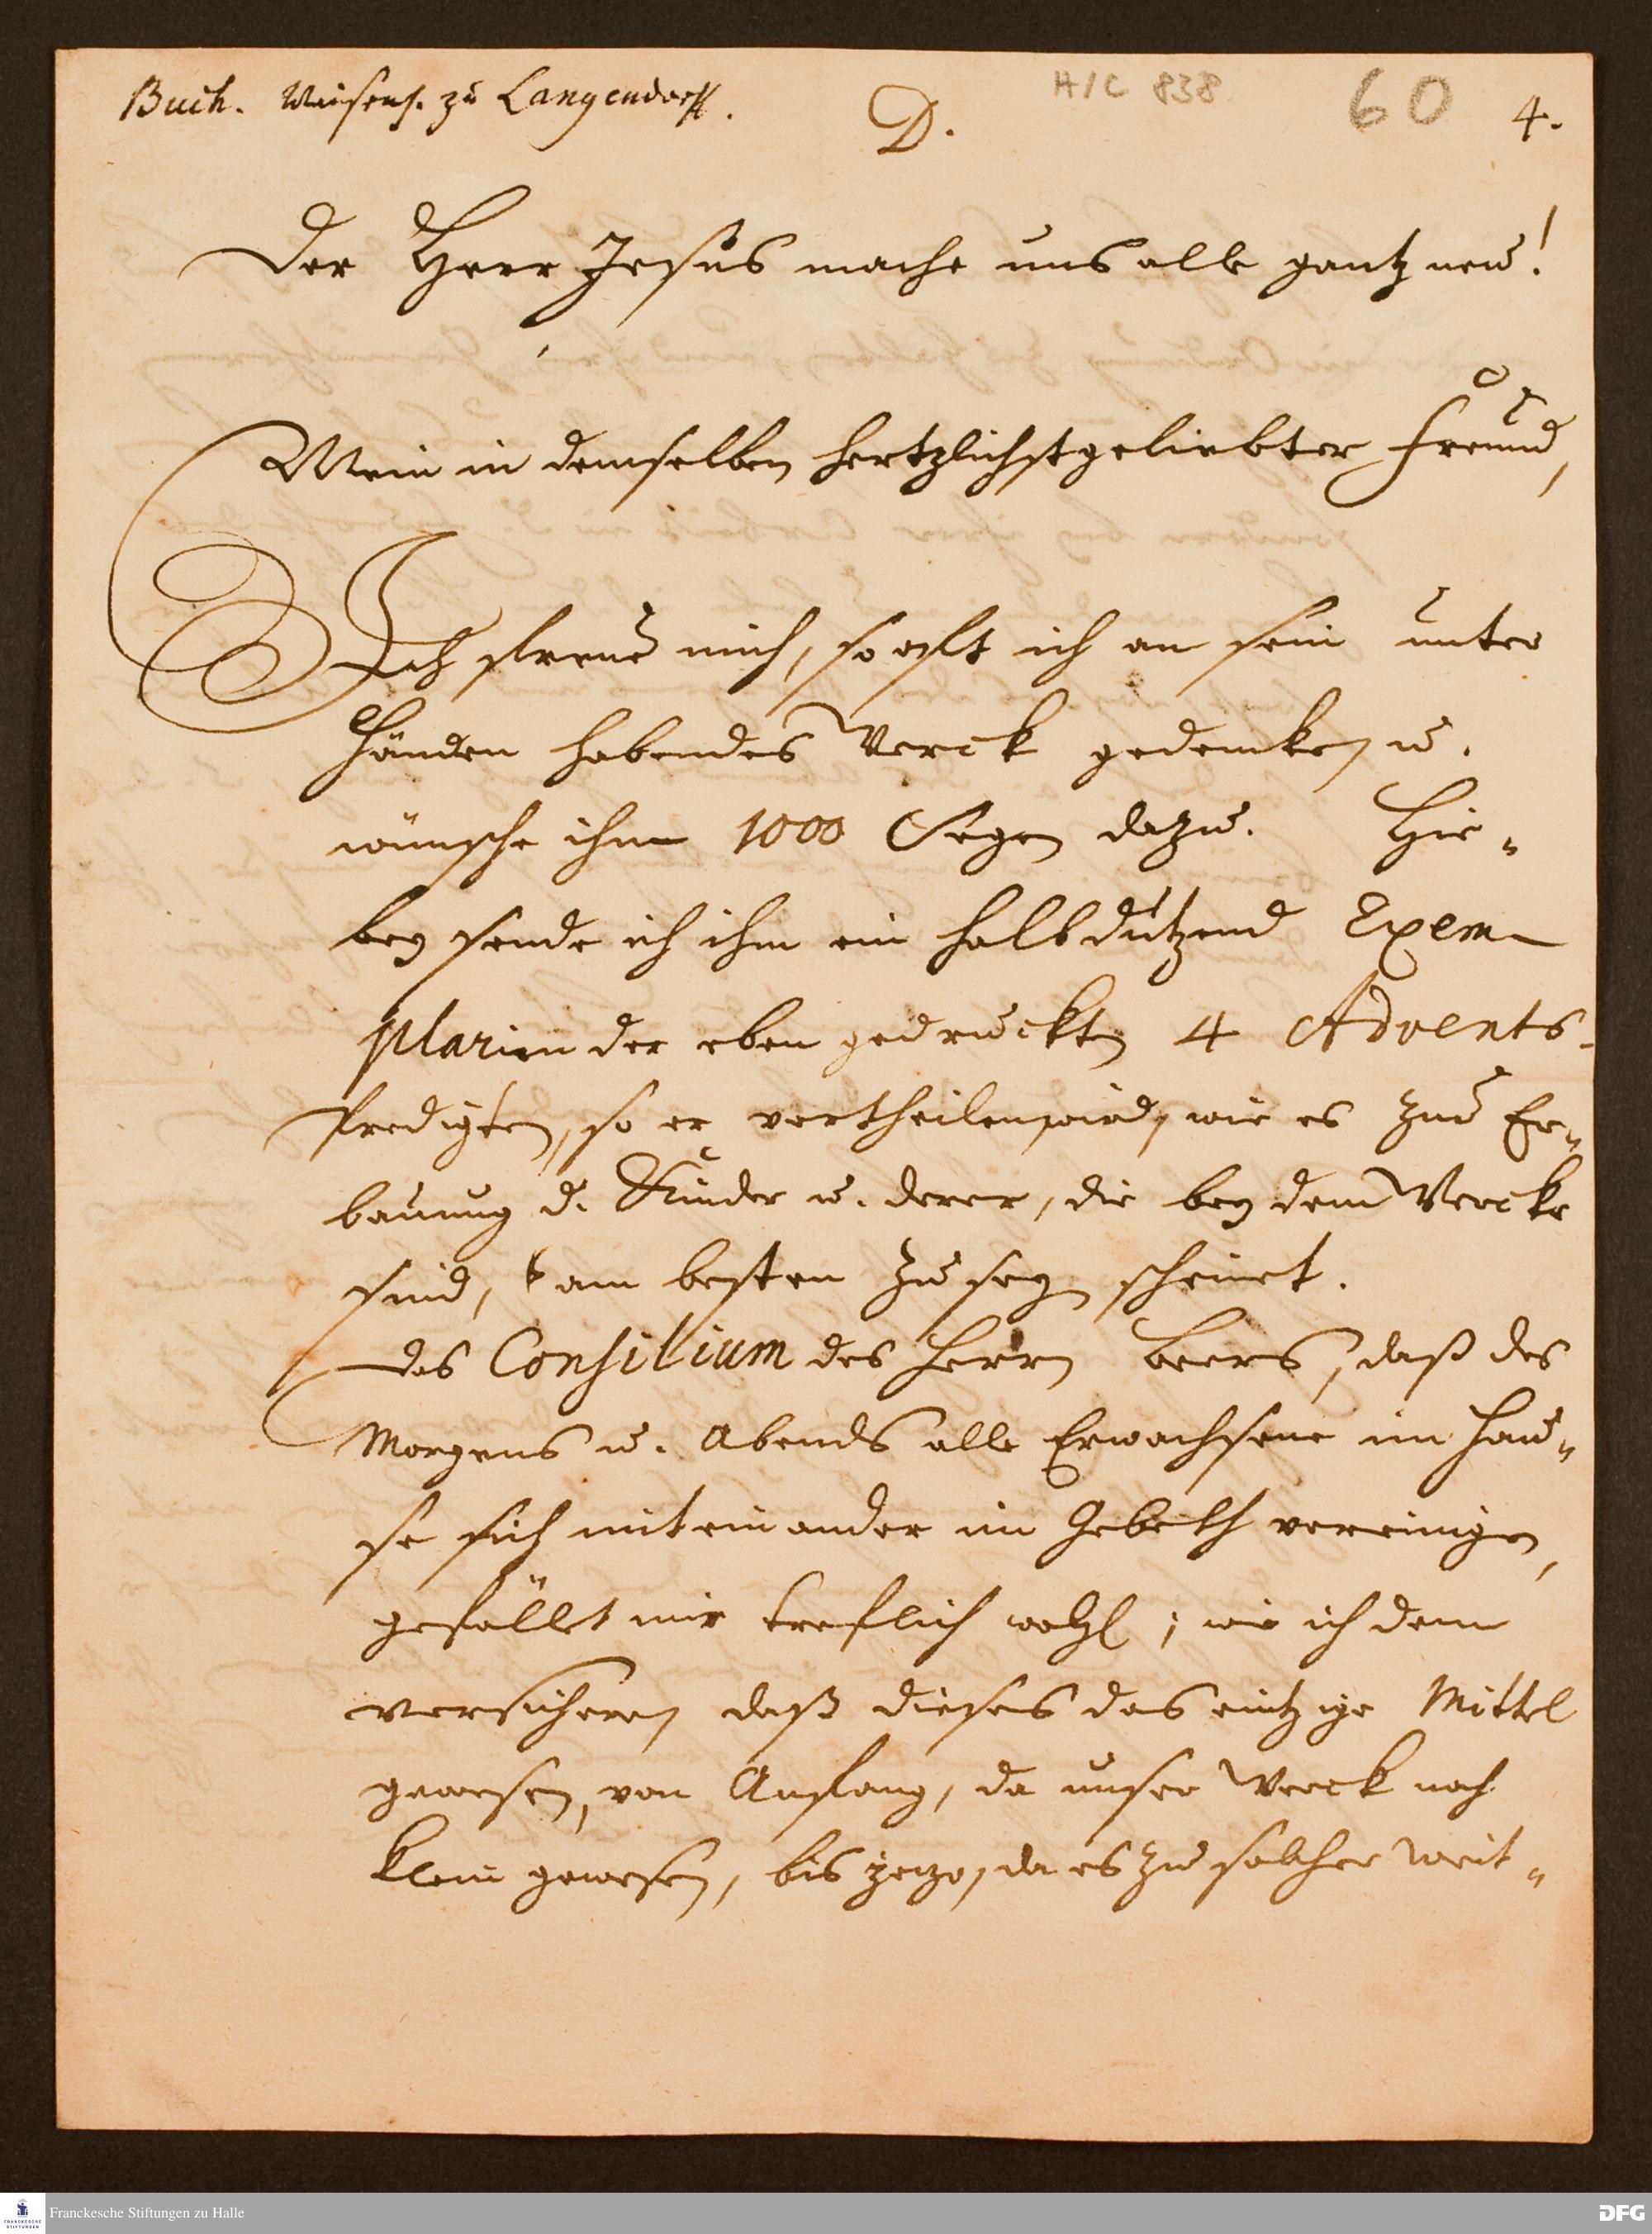 Buch. Waisenh. zu Langendorff.
D.
H/C 838
60
4.
Der Herr Jesus mache uns alle gantz neu!
Mein in demselben hertzlichstgeliebter Freund,
Ich freue mich, so offt ich an sein unter
Händen habendes Werck gedencke, u.
wünsche ihm 1000 Segen dazu. Hie-
bey sende ich ihm ein halb dutzend Exem-
plarien der eben gedruckten 4 Advents-
Predigten, so er vertheilen wird, wie es zur Er-
bauung d. Kinder u. derer, die bey dem Wercke
sind, am besten zu seyn scheinet.
Das Consilium des Herrn Beers, daß des
Morgens u. Abends alle Erwachsene im Hau-
se sich mit einander im Gebeth vereinigen,
gefället mir treflich wohl; wie ich denn
versichern daß dieses das eintzige Mittel
gewesen, von Anfang, da unser Werck noch
klein gewesen, bis jetzo, da es zu solcher Weit-
Franckesche Stiftungen zu Halle
DFG